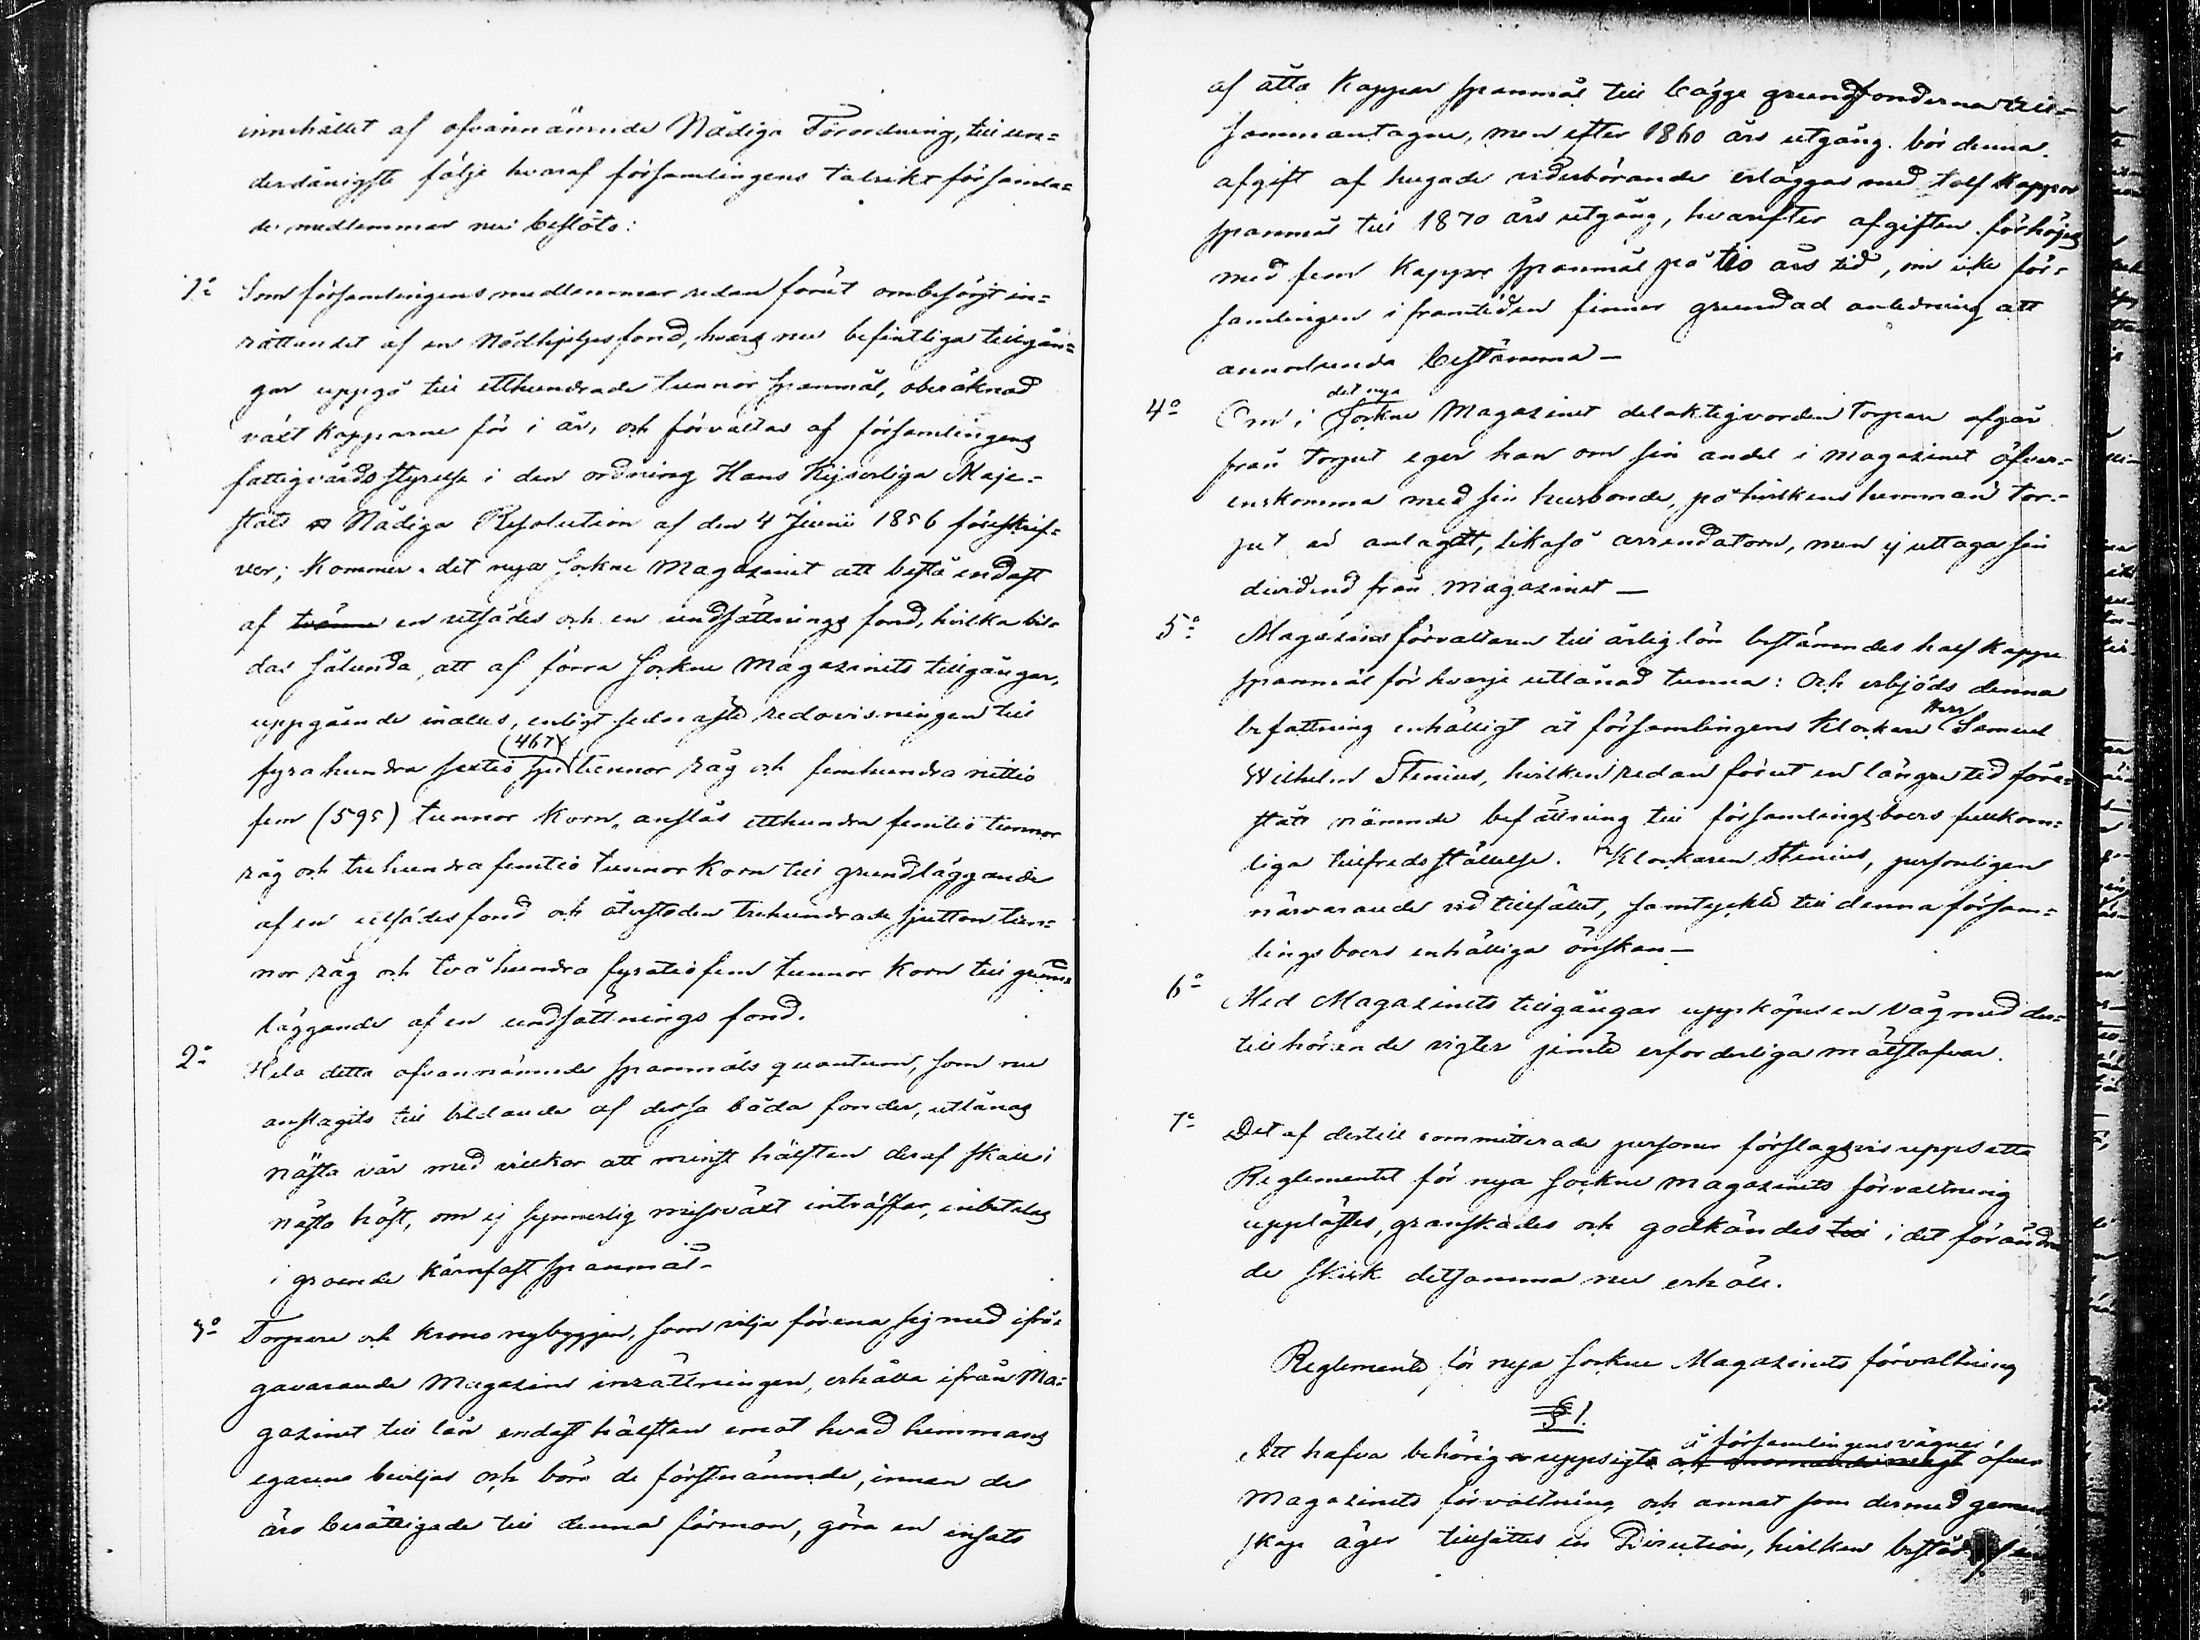 innehållet af ofvannämnde Nådiga Förordning, till un=
derdånigste följe hvaraf församlingens talrikt församla=
de medlemmar nu beslöto:
1o Som församlingens medlemmar redan förut ombesörjt in=
rättandet af en Nödhjelpsfond, hvars nu befintliga tillgån=
gar uppgå till etthundrade tunnor spanmål, oberäknad
växt kapparne för i år, och förvaltas af församlingens
fattigvårds styrelse i den ordning Hans Kejserliga Maje=
stäts Nådiga Resolution af den 4 Junii 1856 föreskrif=
ver; Kommer det nya sockne Magasinet att bestå endast
af tvänne en utsädes och en undsättnings fond, hvilka bil=
das sålunda, att af förra sockne Magasinets tillgångar,
uppgående inalles, enligt sednaste redovisningen till
(467)
fyrahundra sextio sju tunnor råg och femhundra nittio
fem (595) tunnor Korn, anslås etthundra femtio tunnor
råg och trehundra femtio tunnor Korn till grundläggande
af en utsädesfond och återstoden trehundrade sjutton tun=
nor råg och tvåhundra fyratiofem tunnor Korn till grund=
läggande af en undsättnings fond.
2o Hela detta ofvannämnde spanmåls quantum, som nu
anslagits till bildande af dessa båda fonder, utlånas
nästa vår med villkor att minst hälften deraf skall i
nästa höst, om ej synnerlig missväxt inträffar, inbetalas
i groende kärnfast spanmål.
3o Torpare och Krono nybyggare, som vilja förena sig med ifrå=
gavarande Magasins inrättningen, erhålla ifrån Ma=
gasinet till lån endast hälften emot hvad hemmans
egarene beviljas och böra de förstnämnde, innan de
äro berättigade till denna förmon, göra en insats
af åtta Kappar spanmål till bägge grundfonderna till=
sammantagne, men efter 1860 års utgång bör denna
afgift af hugade vederbörande erläggas med tolf Kappar
spanmål till 1870 års utgång, hvarefter afgiften förhöjes
med fem Kappar spanmål på tio års tid, om icke för=
samlingen i framtiden finner grundad anledning att
annorlunda bestämma —
det nya
4o Om i Sockne Magasinet delaktig vorden Torpare afgår
från torpet eger han om sin andel i magasinet öfver=
enskomma med sin husbonde, på hvilkens hemman tor=
pet är anlagdt, likaså arrendatorn, men ej uttaga sin
dividend från Magasinet —
5o Magasins förvaltaren till årlig lön bestämdes half kappe
spanmål för hvarje utlånad tunna: Och erbjöds denna
Herr
befattning enhälligt åt församlingens Klockare Samuel
Wilhelm Stenius, hvilken redan förut en längre tid före=
stått nämnde befattning till församlingsboers fullkom=
liga tillfredsställelse. Klockaren Stenius, personligen
närvarande vid tillfället, samtyckte till denna försam=
lingsboers enhälliga önskan —
6o Med Magasinets tillgångar uppköpes en våg med der=
till hörande vigter jemte erforderliga målstafvar.
7o Det af dertill committerade personer förslagsvis uppsatta
Reglementet för nya sockne magasinets förvaltning
upplästes, granskades och godkändes till i det förändra
de skick detsamma nu erhöll.
Reglemente för nya sockne Magasinets förvaltning
§ 1.
å församlingens vägnar
Att hafva behörig uppsigt öfver
Magasinets förvaltning och annat som dermed gemen
skap äger tillsättes en Direction, hvilken består af en